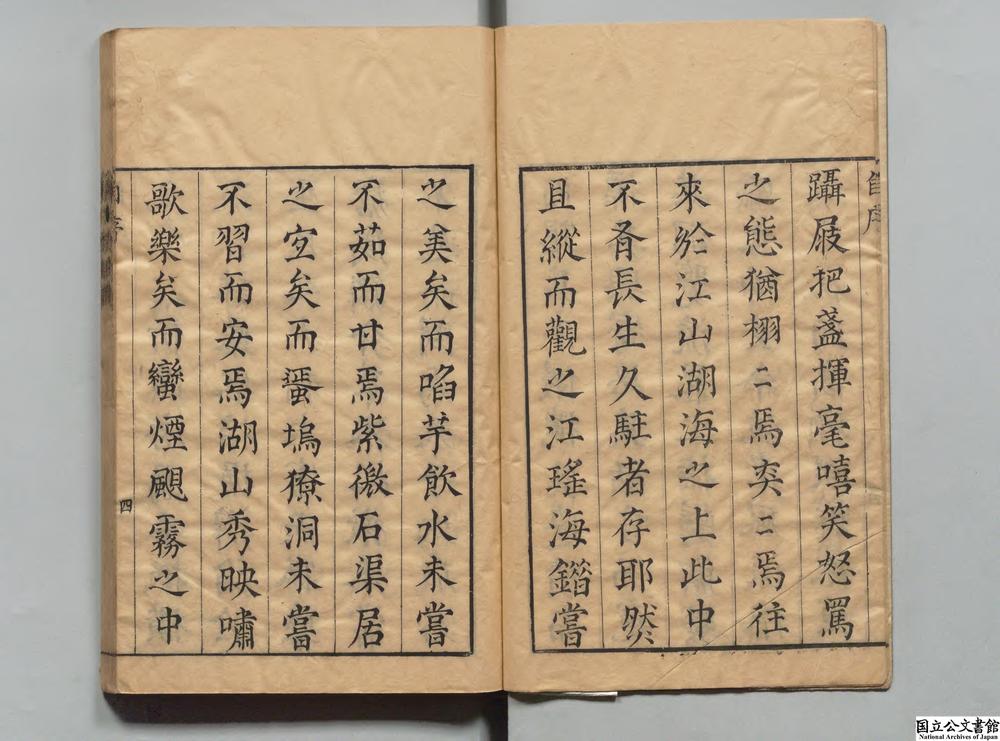 自序
躡屐把盞揮毫嘻笑怒罵
之態猶栩〻焉奕〻焉往
來於江山湖海之上此中
不有長生久駐者存耶然
且縱而觀之江瑤海鐕嘗
之美矣而啗芋飲水未嘗
不茹而甘焉紫微石渠居
之宐矣而蜑塢獠洞未嘗
不習而安焉湖山秀映嘯
歌樂矣而蠻煙颶霧之中
自序
四
国立公文書館
National Archives of Japan